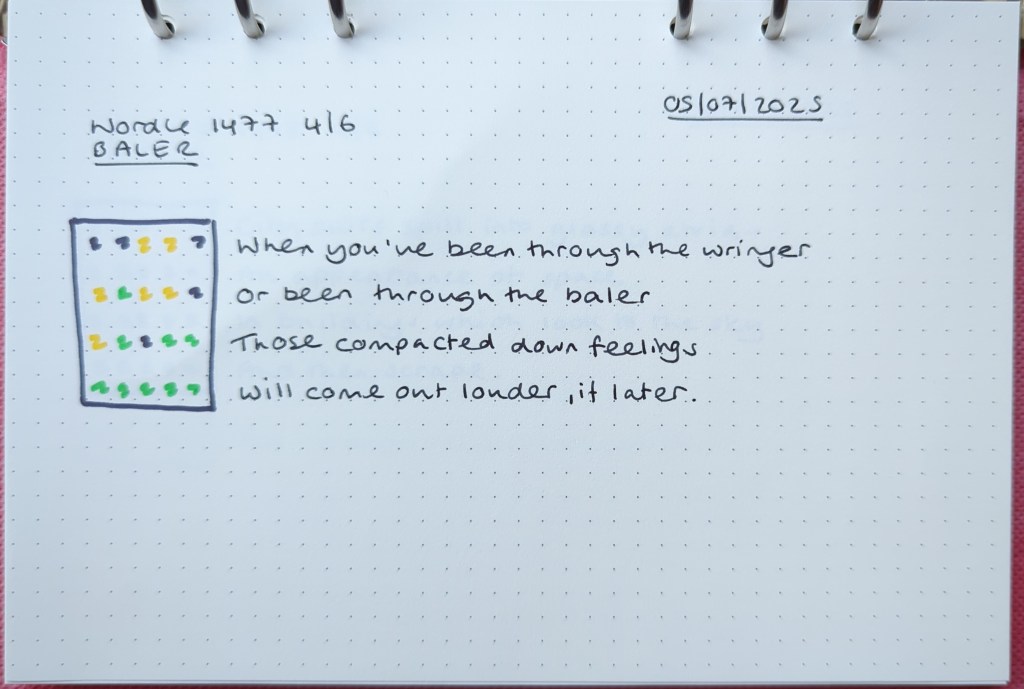 05/07/2025
Wordle 1477 4/6
BALER
When you've been through the wringer
Or been through the baler
Those compacted down feelings
Will come out louder, if later.